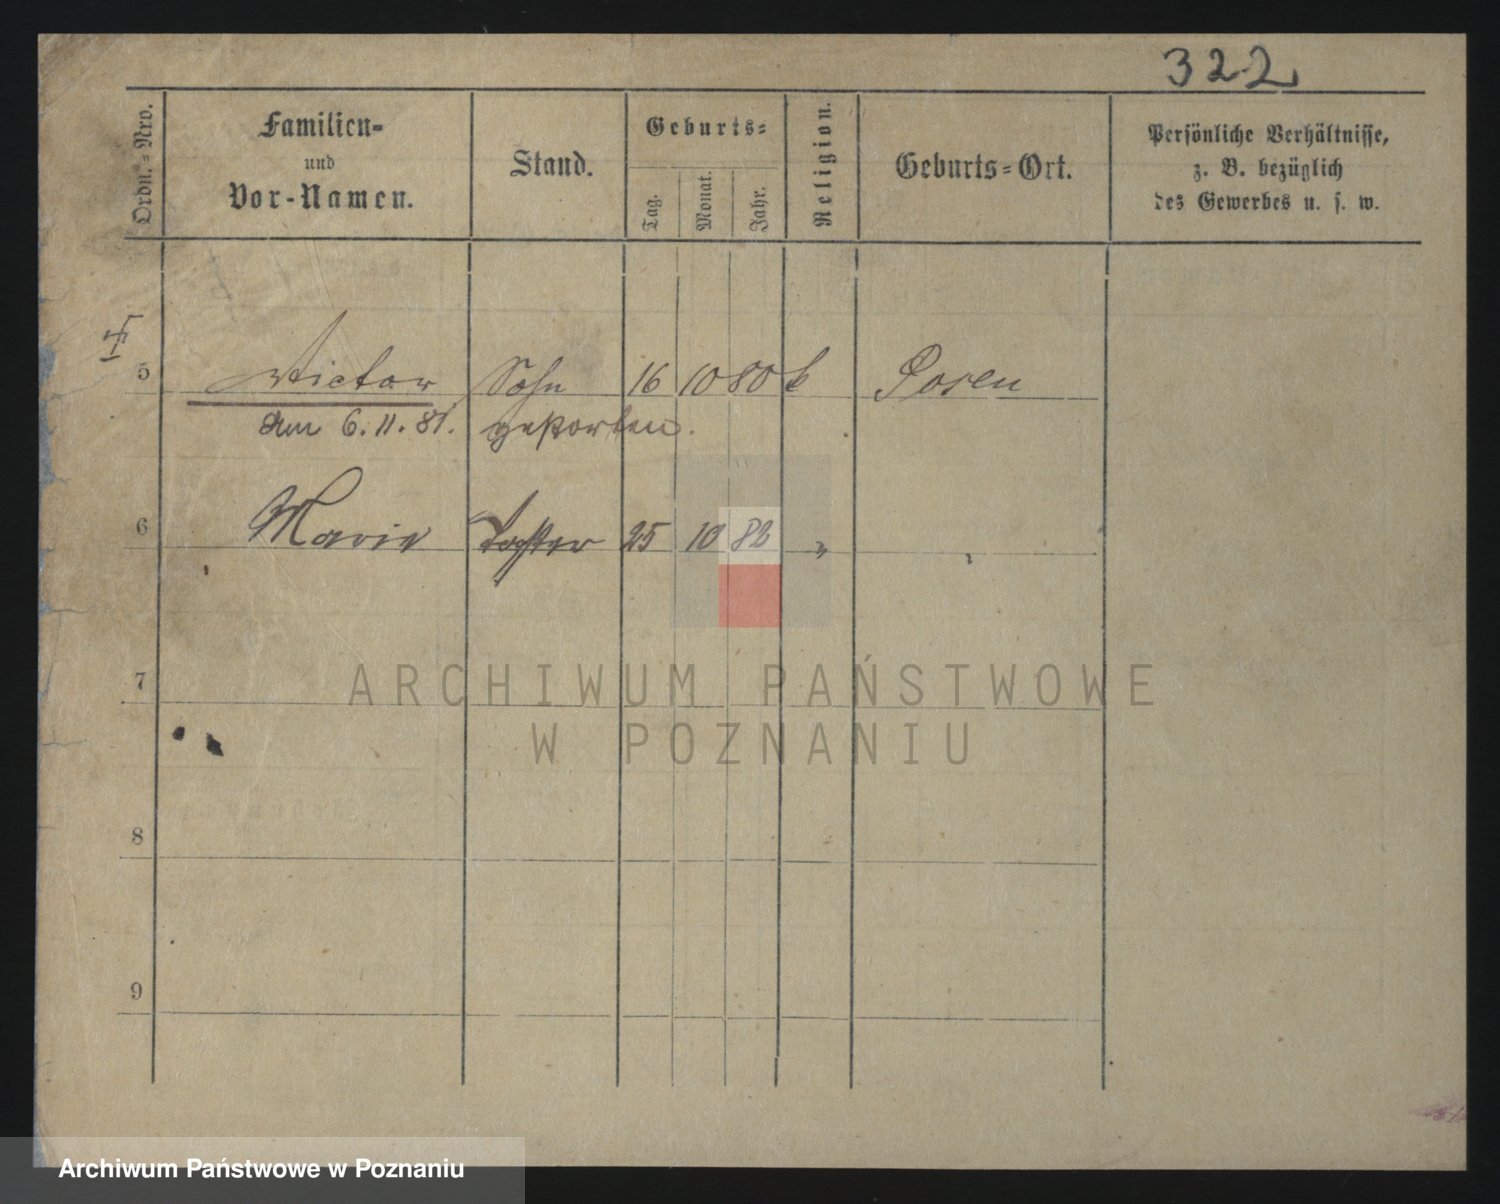 322
Ordn.-Nro.
Familien-
und
Vor-Namen.
Stand.
Geburts-
Tag.
Monat.
Jahr.
Religion.
Geburts-Ort.
Persönliche Verhältnisse,
z. B. bezüglich
des Gewerbes u. s. w.
5 Victor Sohn 16 10 80 k Posen
am 6. 11. 81. gestorben.
6 Marie Tochter 25 10 82 " "
7
ARCHIWUM PAŃSTWOWE
W POZNANIU
8
9
Archiwum Państwowe w Poznaniu